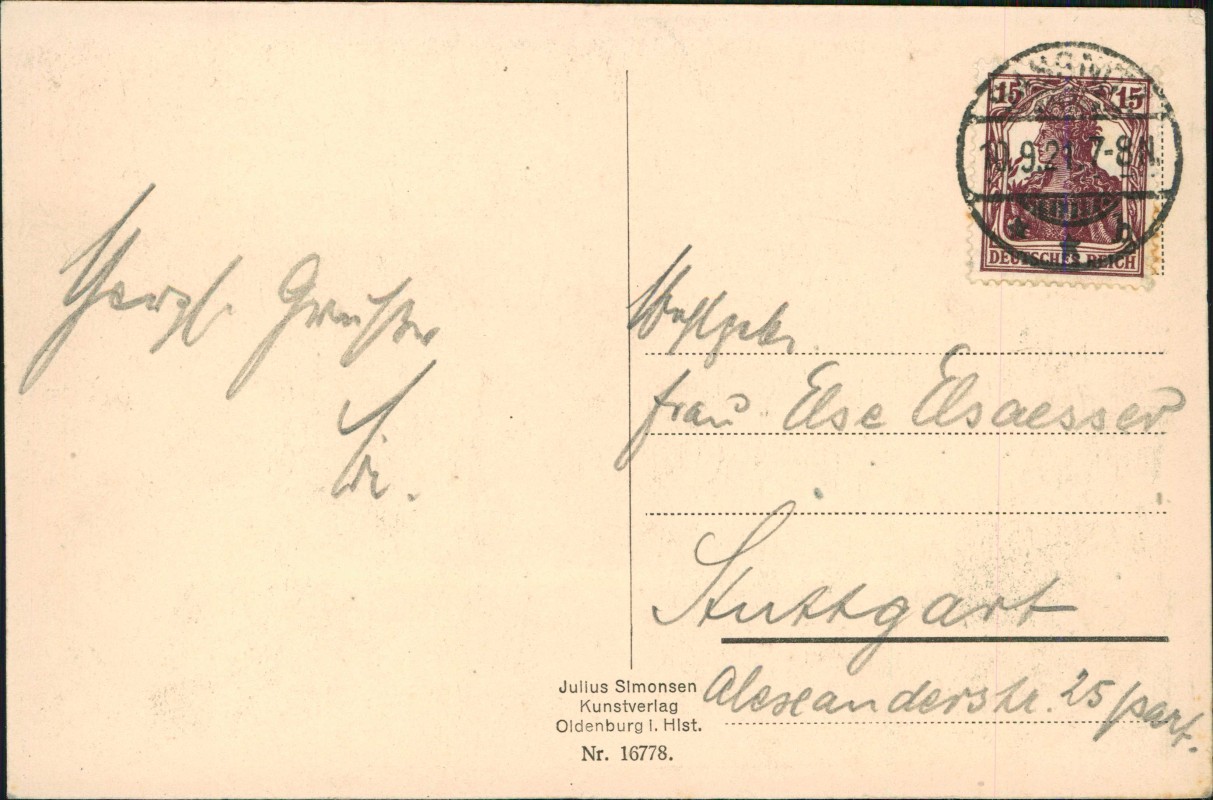 Herzl. Grüße
15 15
10.9.21.7-8 N.
* b
DEUTSCHES REICH
Frau Else Elsaesser
Stuttgart
Alexanderstr. 25 part.
Julius Simonsen
Kunstverlag
Oldenburg i. Hlst.
Nr. 16778.